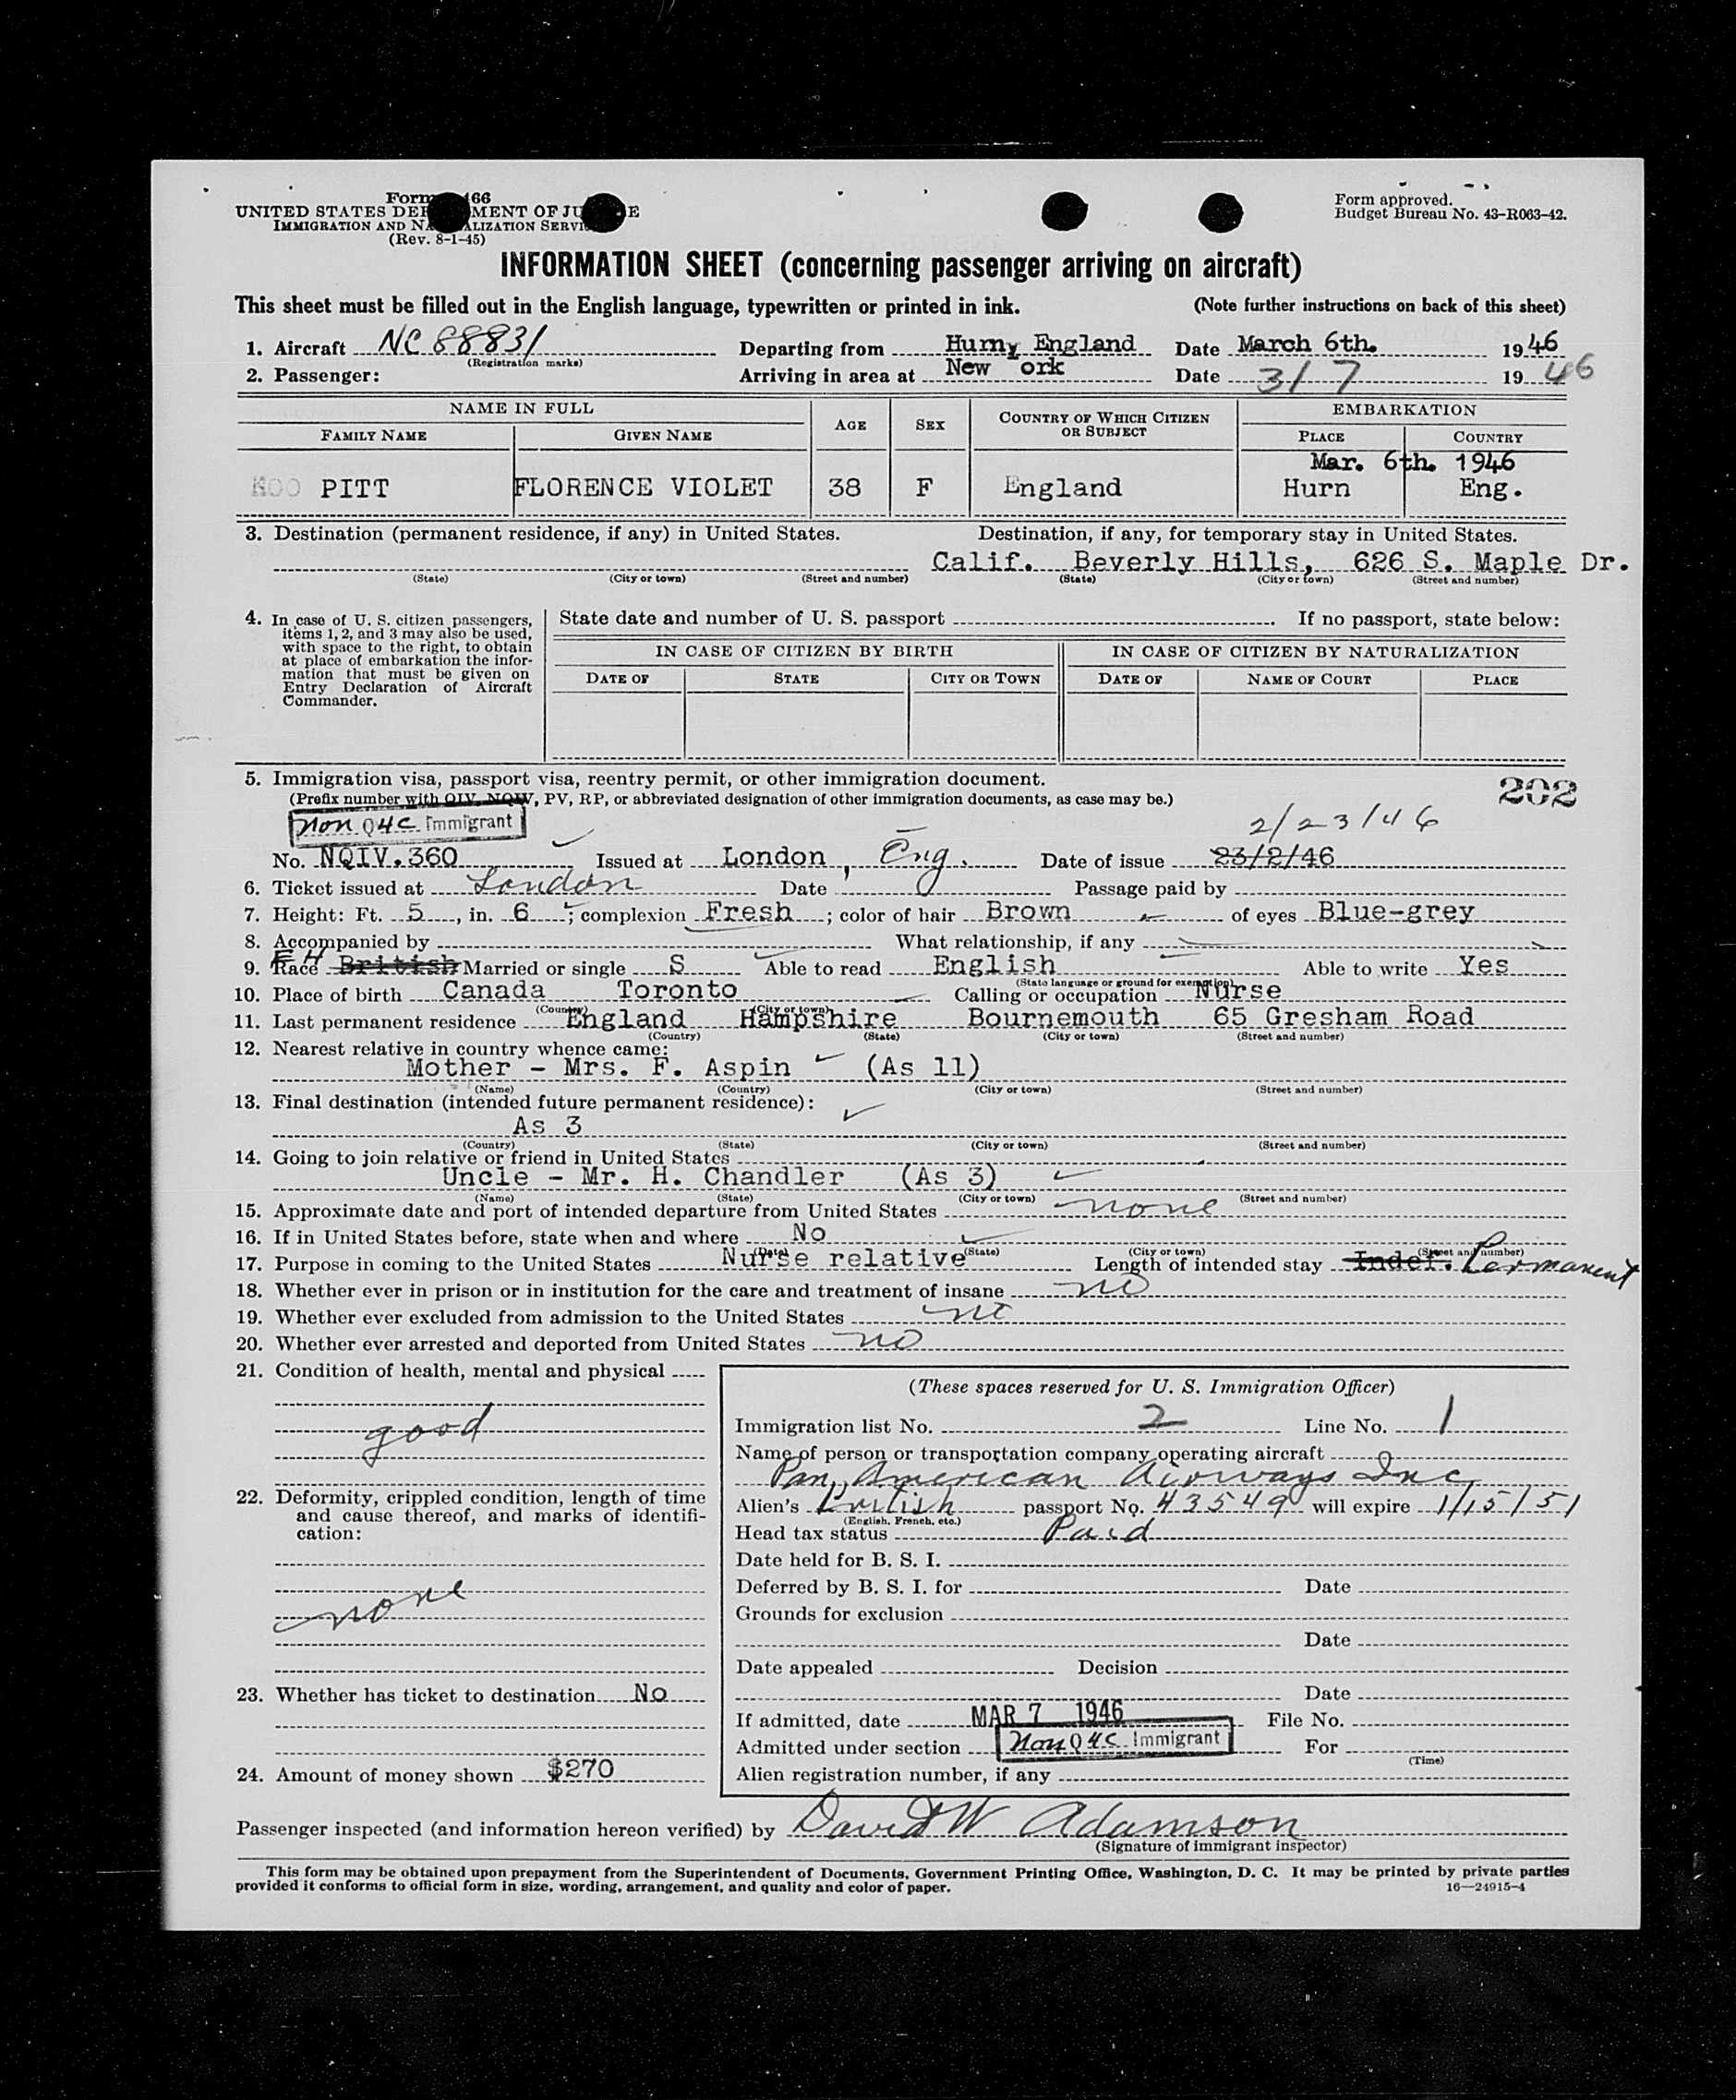 Form 466
UNITED STATES DEPARTMENT OF JUSTICE
IMMIGRATION AND NATURALIZATION SERVICE
(Rev. 8-1-45)
Form approved.
Budget Bureau No. 43-R063-42.
INFORMATION SHEET (concerning passenger arriving on aircraft)
This sheet must be filled out in the English language, typewritten or printed in ink. (Note further instructions on back of this sheet)
1. Aircraft NC 88831 Departing from Hurn, England Date March 6th. 1946
(Registration marks)
2. Passenger: Arriving in area at New ork Date 3/7 1946
NAME IN FULL AGE SEX COUNTRY OF WHICH CITIZEN OR SUBJECT EMBARKATION
FAMILY NAME GIVEN NAME PLACE COUNTRY
Mar. 6th. 1946
PITT FLORENCE VIOLET 38 F England Hurn Eng.
3. Destination (permanent residence, if any) in United States. Destination, if any, for temporary stay in United States.
Calif. Beverly Hills, 626 S. Maple Dr.
(State) (City or town) (Street and number) (State) (City or town) (Street and number)
4. In case of U. S. citizen passengers, items 1, 2, and 3 may also be used, with space to the right, to obtain at place of embarkation the information that must be given on Entry Declaration of Aircraft Commander.
State date and number of U. S. passport . If no passport, state below:
IN CASE OF CITIZEN BY BIRTH IN CASE OF CITIZEN BY NATURALIZATION
DATE OF STATE CITY OR TOWN DATE OF NAME OF COURT PLACE
5. Immigration visa, passport visa, reentry permit, or other immigration document.
(Prefix number with QIV, NQIV, PV, RP, or abbreviated designation of other immigration documents, as case may be.)
202
Non Q 4C Immigrant
2/23/46
No. NQIV.360 Issued at London, Eng. Date of issue 23/2/46
6. Ticket issued at London Date Passage paid by
7. Height: Ft. 5, in. 6; complexion Fresh; color of hair Brown of eyes Blue-grey
8. Accompanied by What relationship, if any
9. Race British Married or single S Able to read English Able to write Yes
(State language or ground for exemption)
10. Place of birth Canada Toronto Calling or occupation Nurse
(Country) (City or town)
11. Last permanent residence England Hampshire Bournemouth 65 Gresham Road
(Country) (State) (City or town) (Street and number)
12. Nearest relative in country whence came:
Mother - Mrs. F. Aspin (As 11)
(Name) (Country) (City or town) (Street and number)
13. Final destination (intended future permanent residence):
As 3
(Country) (State) (City or town) (Street and number)
14. Going to join relative or friend in United States
Uncle - Mr. H. Chandler (As 3)
(Name) (State) (City or town) (Street and number)
15. Approximate date and port of intended departure from United States none
16. If in United States before, state when and where No
(Date) (State) (City or town) (Street and number)
17. Purpose in coming to the United States Nurse relative Length of intended stay Indef. Permanent
18. Whether ever in prison or in institution for the care and treatment of insane no
19. Whether ever excluded from admission to the United States no
20. Whether ever arrested and deported from United States no
21. Condition of health, mental and physical
good
22. Deformity, crippled condition, length of time and cause thereof, and marks of identification:
none
23. Whether has ticket to destination No
24. Amount of money shown $270
(These spaces reserved for U. S. Immigration Officer)
Immigration list No. 2 Line No. 1
Name of person or transportation company operating aircraft
Pan American Airways Inc
Alien's British passport No. 43549 will expire 1/15/51
(English, French, etc.)
Head tax status Paid
Date held for B. S. I.
Deferred by B. S. I. for Date
Grounds for exclusion
Date
Date appealed Decision
Date
If admitted, date MAR 7 1946 File No.
Admitted under section Non Q 4C Immigrant For
(Time)
Alien registration number, if any
Passenger inspected (and information hereon verified) by David W Adamson
(Signature of immigrant inspector)
This form may be obtained upon prepayment from the Superintendent of Documents, Government Printing Office, Washington, D. C. It may be printed by private parties
provided it conforms to official form in size, wording, arrangement, and quality and color of paper. 16—24915-4